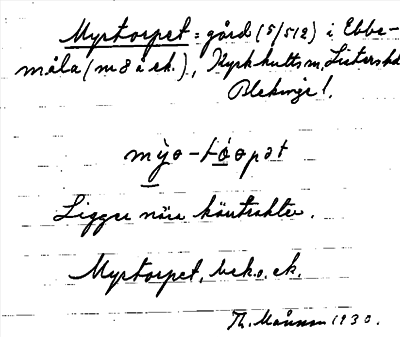 Myrtorpet = gård (5/512) i Ebbe-
måla (m 8 i ek.), Kyrkhults sn, Listers hd
Blekinge l.
mỳɵ-tɵ́ɵpət
Ligger nära kärrtrakter.
Myrtorpet, bek. o. ek.
Th. Månsson 1930.